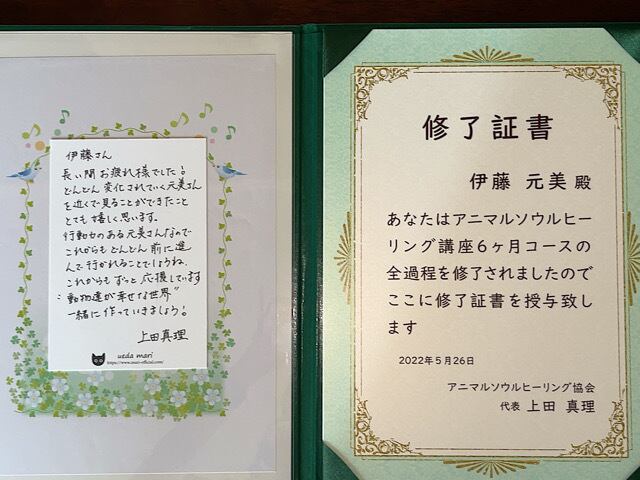 伊藤さん
長い間お疲れ様でした！
どんどん変化されていく元美さん
を近くで見ることができたこと
とても嬉しく思います。
行動力のある元美さんなので
これからもどんどん前に進
んで行かれることでしょうね。
これからもずっと応援しています
"動物達が幸せな世界"
一緒に作っていきましょう！
上田真理
ueda mari
https://www.mari-official.com/
修了証書
伊藤 元美 殿
あなたはアニマルソウルヒー
リング講座６ヶ月コースの
全過程を修了されましたので
ここに修了証書を授与致し
ます
2022年5月26日
アニマルソウルヒーリング協会
代表 上田 真理